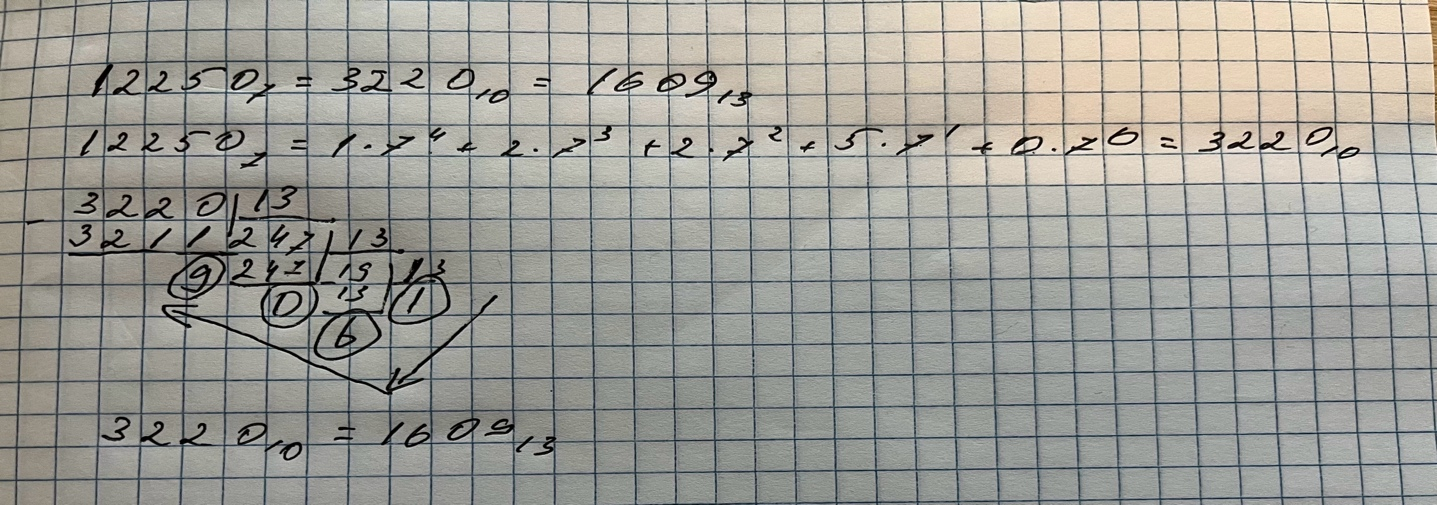 12250₇ = 3220₁₀ = 1609₁₃
12250₇ = 1·7⁴ + 2·7³ + 2·7² + 5·7¹ + 0·7⁰ = 3220₁₀
- 3220 | 13
3211 | 247 | 13
9 247 | 19 | 13
0 13 | 1
6
3220₁₀ = 1609₁₃